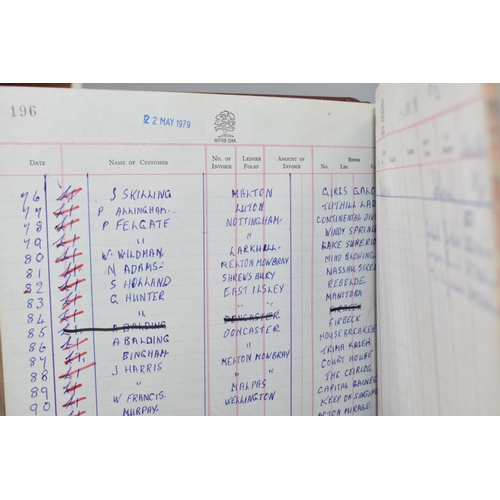 196
22 MAY 1979
MITRE OAK
DATE NAME OF CUSTOMER NO. OF INVOICE LEDGER FOLIO AMOUNT OF INVOICE No.
76 J SKILLING MALTON GIRLS
77 P ALLINGHAM.. LUTON TUTHILL
78 P FELGATE NOTTINGHAM. CONTINENTAL
79 " " WINDY SPRING
80 W. WILDMAN. LARKHILL. LAKE SUPERIO
81 N ADAMS. MELTON MOWBRAY MIND BLOWING
82 S HOLLAND SHREWSBURY NASSAU STREE
83 G HUNTER EAST ILSLEY REBELDE
84 " " MANITOBA
85 A BALDING DONCASTER FIRBECK
86 A BALDING DONCASTER FIRBECK
87 BINGHAM. " HOUSEBREAKER
88 J HARRIS MELTON MOWBRAY TRIMA
89 " " COURT HOUSE
90 W FRANCIS. MALPAS THE CEIRIOG
MURPHY. WELLINGTON CAPITAL
KEEP ON
MIRAGE